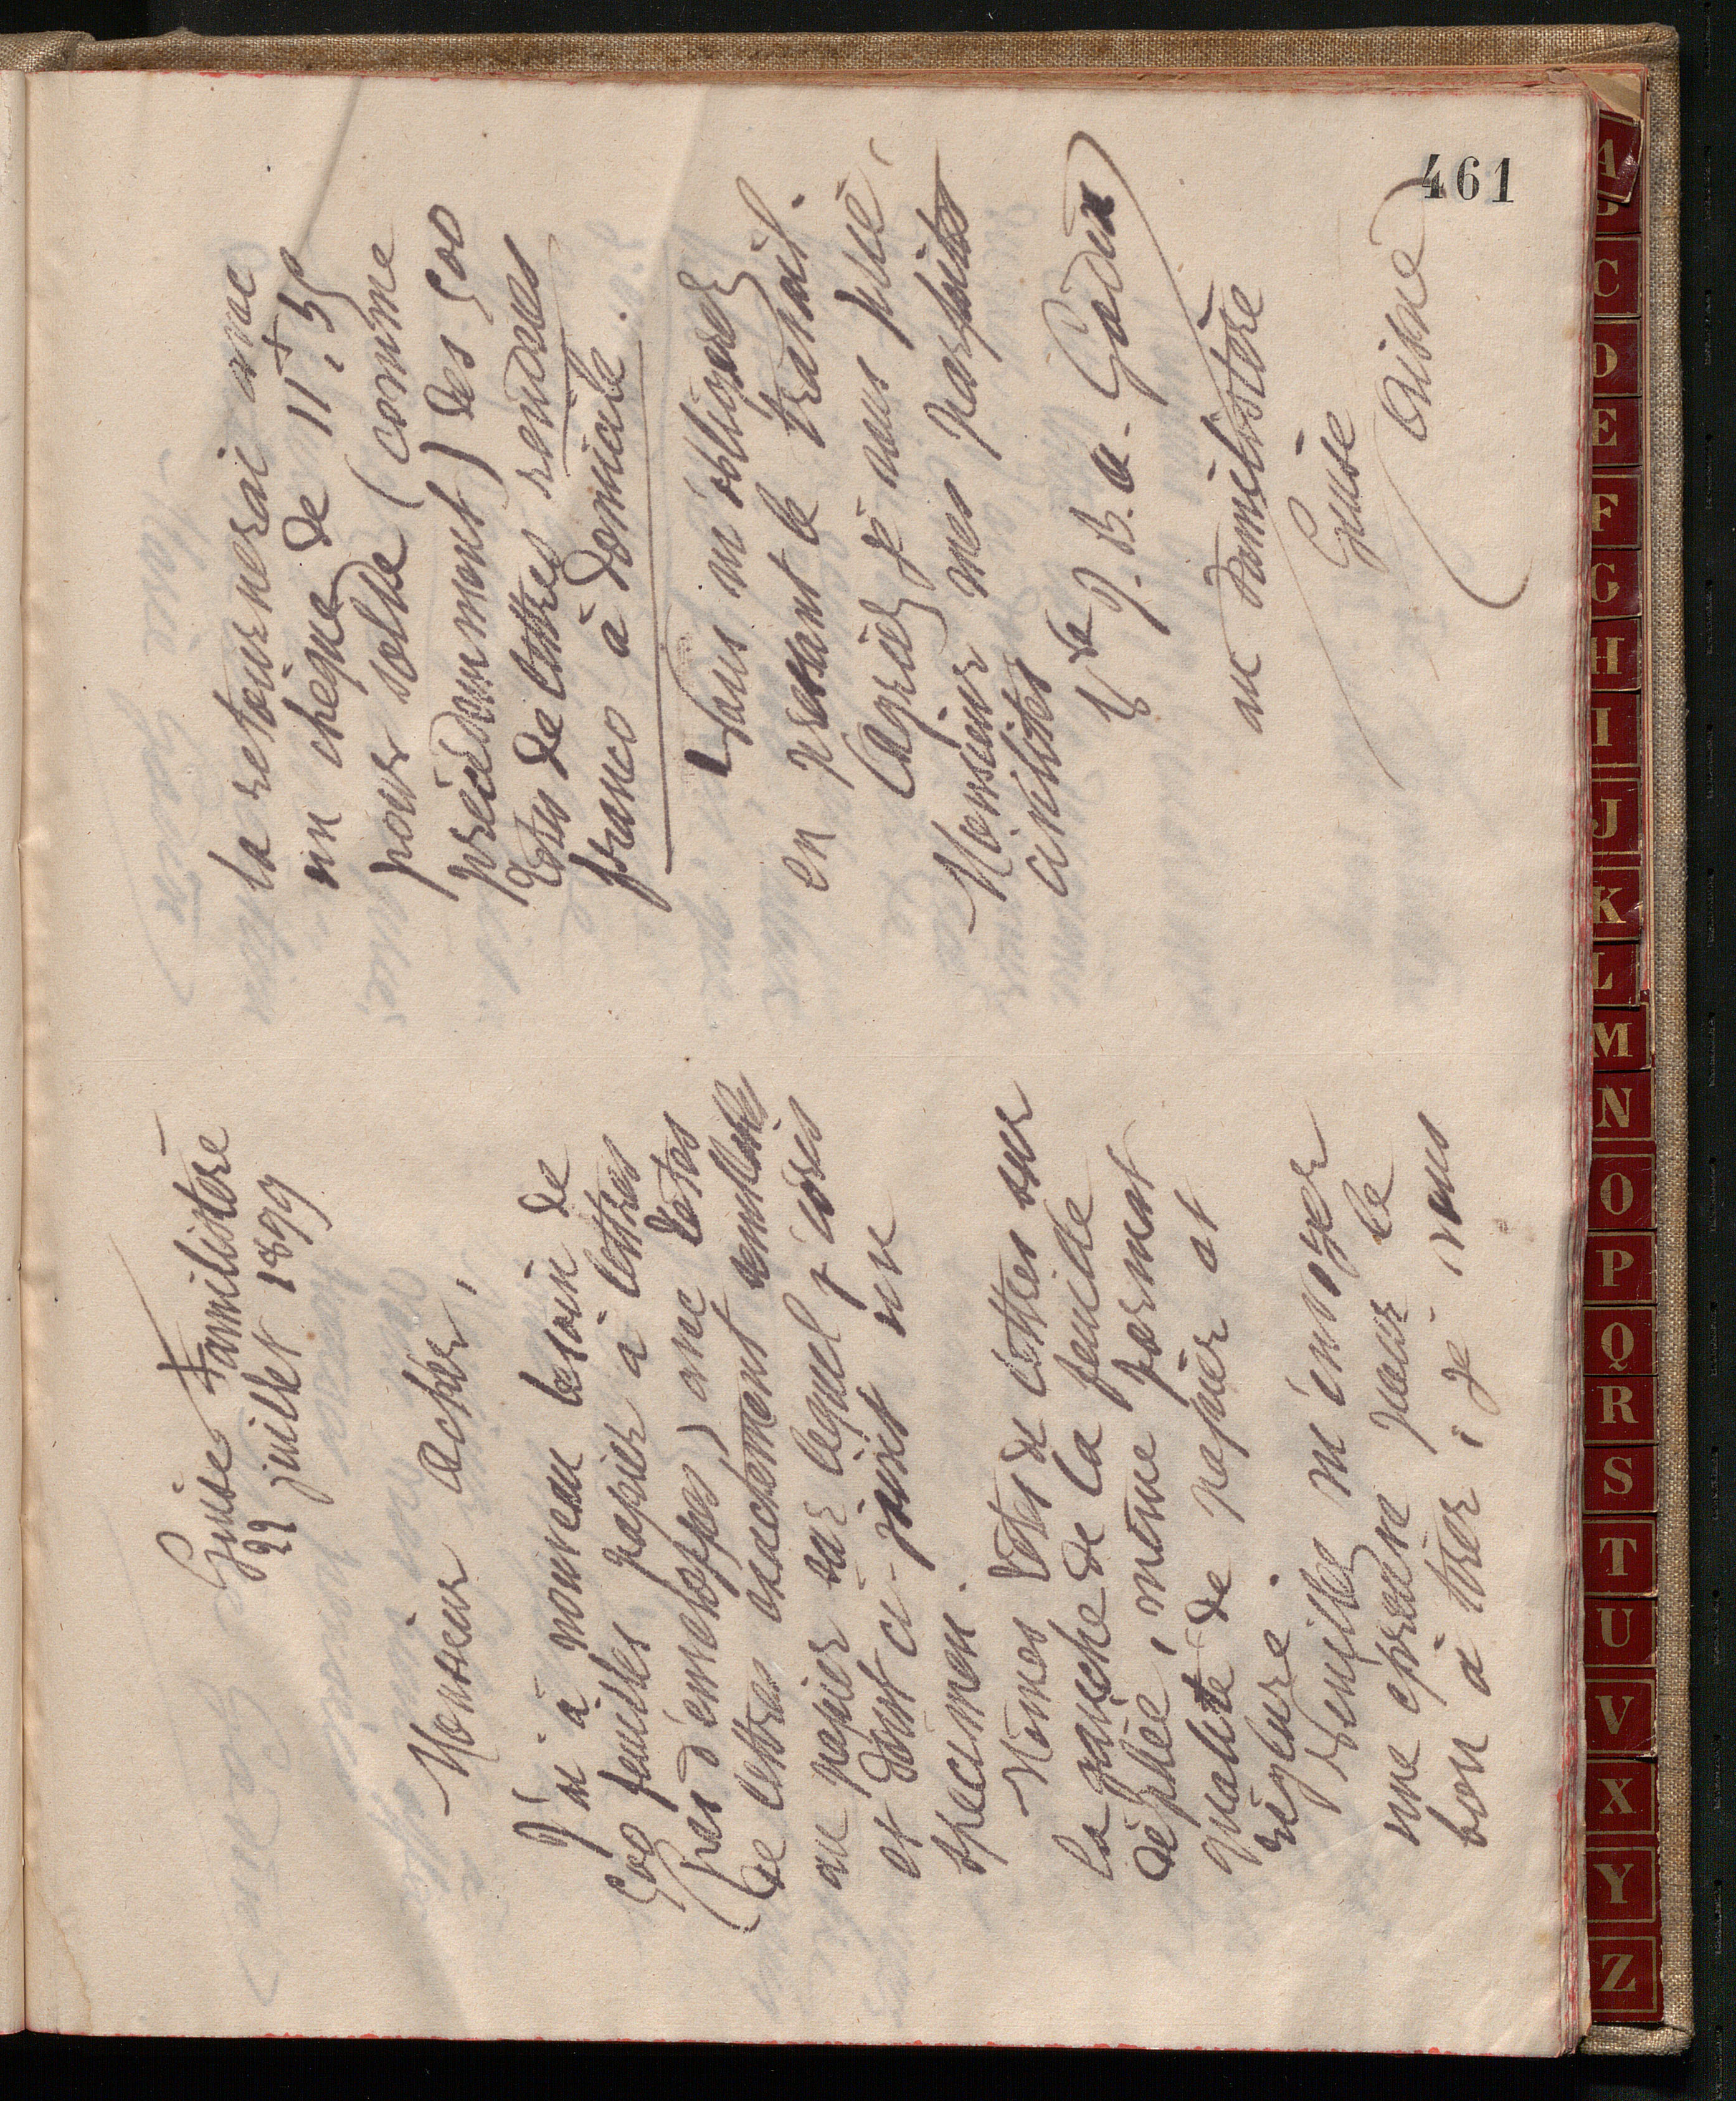 461
Guise Familistère
22 juillet 1899
Monsieur Acker,
J'ai à nouveau besoin de
500 feuilles papier à lettres
(pas d'enveloppes) avec têtes
de lettres exactement semblables
au papier sur lequel j'écris
et dont ci-joint un
specimen.
Mêmes têtes de lettres sur
la gauche de la feuille
dépliée, même format
qualité de papier et
réglure.
Veuillez m'envoyer
une épreuve pour le
bon à tirer, je vous
la retournerai avec
un chèque de 11f,50
pour solde (comme
précédemment) des 500
têtes de lettres rendues
franco à domicile.
Vous m'obligerez
en pressant le travail.
Agréez je vous prie
Monsieur mes parfaites
civilités
Vve J. B. A. Godin
au Familistère
Guise
Aisne
A
C
D
E
F
G
H
I
J
K
L
M
N
O
P
Q
R
S
T
U
V
X
Y
Z